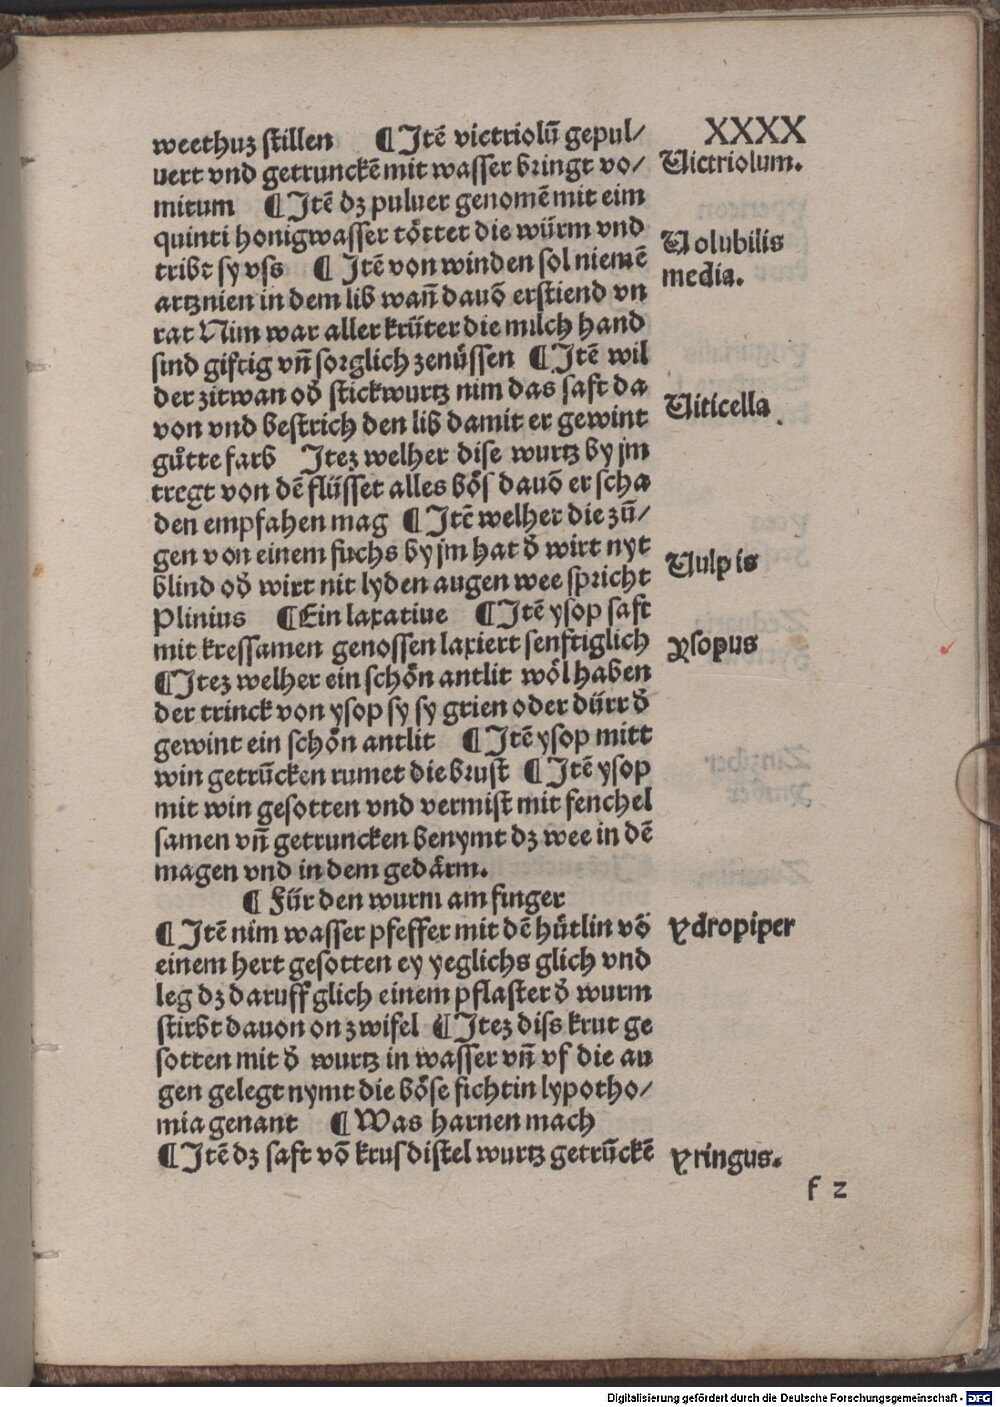 XXXX
weethuz stillen ¶ Jtē victriolū gepul/
uert vnd getrunckē mit wasser bringt vo/
mitum ¶ Jtē dz puluer genomē mit eim
quinti honigwasser töttet die würm vnd
tribt sy vss ¶ Jtē von winden sol niemē
artznien in dem lib wañ dauō erstiend vn
rat Nim war aller krüter die milch hand
sind giftig vñ sorglich zenüssen ¶ Jtē wil
der zitwan od̄ stickwurtz nim das saft da
von vnd bestrich den lib damit er gewint
gůtte farb Jtez welher dise wurtz by jm
tregt von dē flüsset alles bös dauō er scha
den empfahen mag ¶ Jtē welher die zū/
gen von einem fuchs by jm hat d̄ wirt nyt
blind od̄ wirt nit lyden augen wee spricht
Plinius ¶ Ein laxatiue ¶ Jtē ysop saft
mit kressamen genossen laxiert senftiglich
¶ Jtez welher ein schön antlit wöl haben
der trinck von ysop sy sy grien oder dürr d̄
gewint ein schön antlit ¶ Jtē ysop mitt
win getrūcken rumet die brust ¶ Jtē ysop
mit win gesotten vnd vermist mit fenchel
samen vñ getruncken benymt dz wee in dē
magen vnd in dem gedärm.
¶ Für den wurm am finger
¶ Jtē nim wasser pfeffer mit dē hütlin vō
einem hert gesotten ey yeglichs glich vnd
leg dz daruff glich einem pflaster d̄ wurm
stirbt dauon on zwifel ¶ Jtez diss krut ge
sotten mit d̄ wurtz in wasser vñ vf die au
gen gelegt nymt die böse fichtin lypotho/
mia genant ¶ Was harnen mach
¶ Jtē dz saft vō krusdistel wurtz getrūckē
Victriolum.
Volubilis
media.
Viticella
Vulpis
Ysopus
Ydropiper
Yringus.
f 2
Digitalisierung gefördert durch die Deutsche Forschungsgemeinschaft - DFG